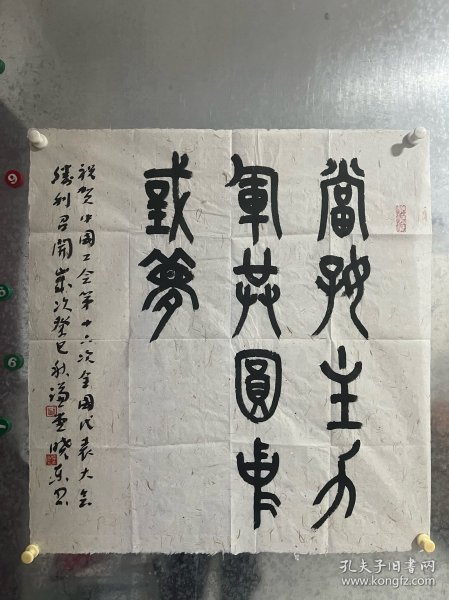 當好主力
軍共圓中
國夢
祝贺中國工会第十六次全國代表大会
勝利召開歲次癸巳秋謹
曉东书
孔夫子旧书网
www.kongfz.com
6